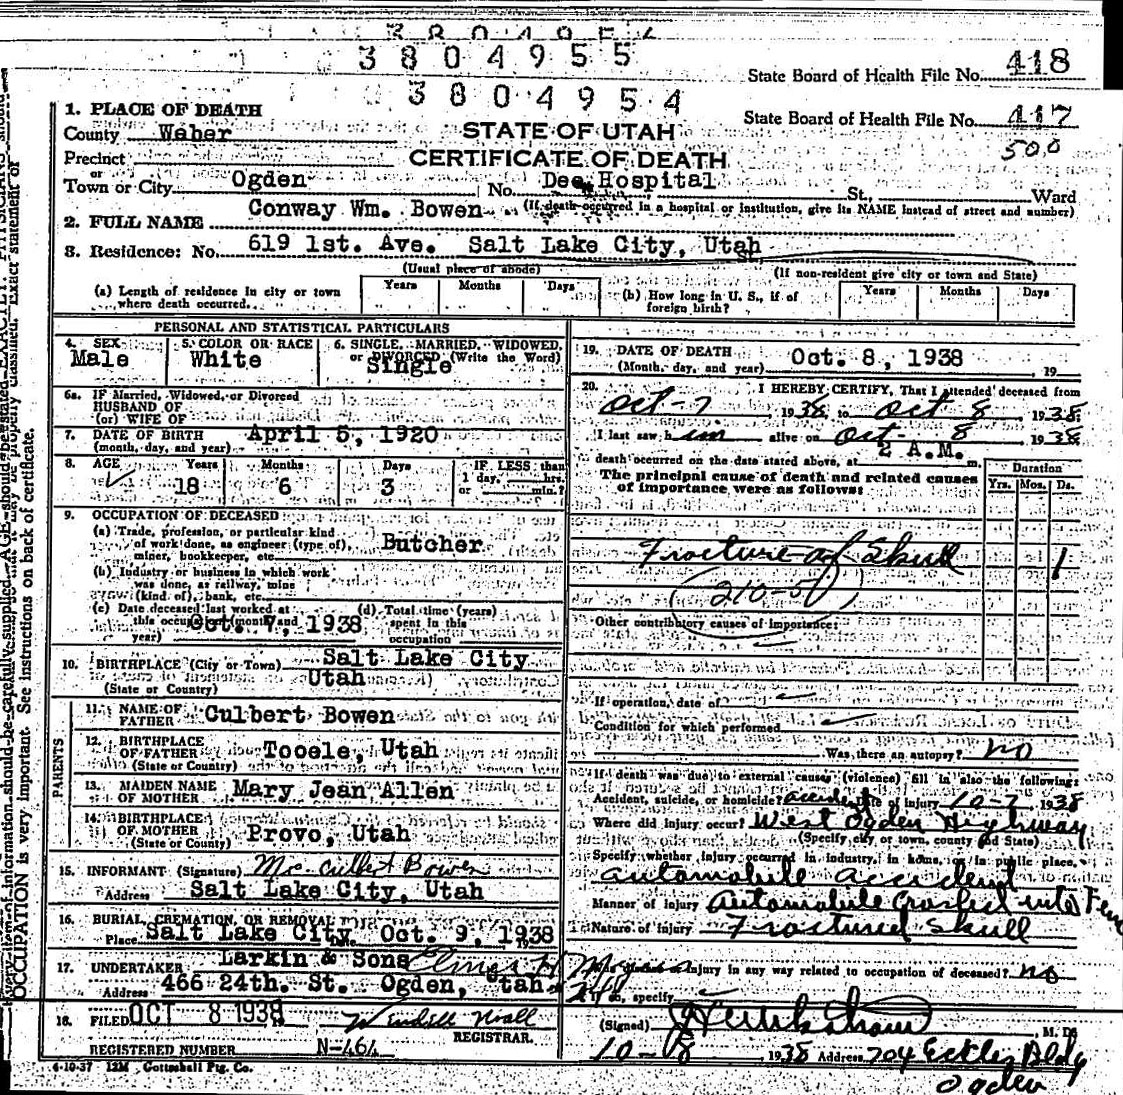 3804955
State Board of Health File No. 418
3804954
State Board of Health File No. 417
500
1. PLACE OF DEATH
County Weber
STATE OF UTAH
CERTIFICATE OF DEATH
Precinct
or
Town or City Ogden No. Dee Hospital St., Ward
(If death occurred in a hospital or institution, give its NAME instead of street and number)
2. FULL NAME Conway Wm. Bowen
3. Residence: No. 619 1st. Ave. Salt Lake City, Utah
St.
(Usual place of abode) (If non-resident give city or town and State)
(a) Length of residence in city or town where death occurred. Years Months Days
(b) How long in U. S., if of foreign birth? Years Months Days
PERSONAL AND STATISTICAL PARTICULARS
4. SEX Male
5. COLOR OR RACE White
6. SINGLE, MARRIED, WIDOWED, or DIVORCED (Write the Word) Single
6a. IF Married, Widowed, or Divorced
HUSBAND OF
(or) WIFE OF
7. DATE OF BIRTH April 5, 1920
(month, day, and year)
8. AGE Years 18 Months 6 Days 3
IF LESS than 1 day, hrs. or min.?
9. OCCUPATION OF DECEASED
(a) Trade, profession, or particular kind of work done, as engineer (type of), miner, bookkeeper, etc. Butcher
(b) Industry or business in which work was done, as railway, mine (kind of), bank, etc.
(c) Date deceased last worked at this occupation (month and year) Oct. 7, 1938
(d) Total time (years) spent in this occupation
10. BIRTHPLACE (City or Town) Salt Lake City
(State or Country) Utah
PARENTS
11. NAME OF FATHER Culbert Bowen
12. BIRTHPLACE OF FATHER Tooele, Utah
(State or Country)
13. MAIDEN NAME OF MOTHER Mary Jean Allen
14. BIRTHPLACE OF MOTHER Provo, Utah
(State or Country)
15. INFORMANT (Signature) Mr. Culbert Bowen
Address Salt Lake City, Utah
16. BURIAL, CREMATION, OR REMOVAL
Place Salt Lake City Date Oct. 9, 1938
17. UNDERTAKER Larkin & Sons
Address 466 24th. St. Ogden, Utah
18. FILED OCT 8 1938
REGISTRAR.
REGISTERED NUMBER N-464
4-10-37 12M Gottshall Ptg. Co.
19. DATE OF DEATH Oct. 8, 1938
(Month, day, and year) 19
20. I HEREBY CERTIFY, That I attended deceased from
Oct-7 1938, to Oct 8, 1938
I last saw him alive on Oct-8 1938
death occurred on the date stated above, at 2 A.M. m.
The principal cause of death and related causes of importance were as follows:
Duration
Yrs. Mos. Ds.
Fracture of Skull 1
(210-5)
Other contributory causes of importance:
If operation, date of
Condition for which performed
Was there an autopsy? no
If death was due to external causes (violence) fill in also the following:
Accident, suicide, or homicide? accident Date of injury 10-7 1938
Where did injury occur? West Ogden Highway
(Specify city or town, county and State)
Specify whether injury occurred in industry, in home, or in public place.
automobile accident
Manner of injury Automobile Crashed into
Nature of injury Fractured Skull
Was disease or injury in any way related to occupation of deceased? no
If so, specify
(Signed) M. D.
10-8, 1938 Address 704 Eccles Bldg
Ogden
OCCUPATION is very important. See instructions on back of certificate.